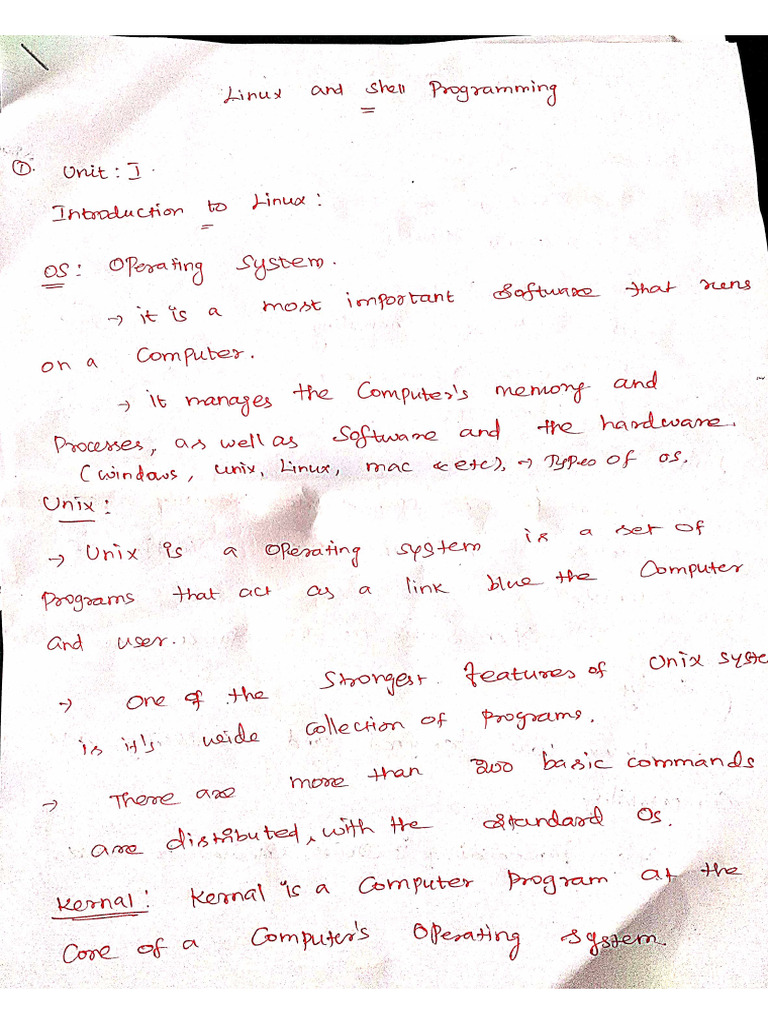 Linux and Shell Programming
①. Unit : I.
Introduction to Linux :
OS : Operating System.
→ it is a most important Software that runs
on a Computer.
→ it manages the Computer's memory and
Processes, as well as Software and the hardware.
(windows, Unix, Linux, mac & etc), → Types of OS.
Unix :
→ Unix is a Operating system is a set of
Programs that act as a link b/w the Computer
and user.
→ One of the Strongest features of Unix syste
is it's wide Collection of Programs.
→ There are more than 200 basic commands
are distributed, with the standard Os.
Kernal : Kernal is a Computer Program at the
Core of a Computer's Operating System